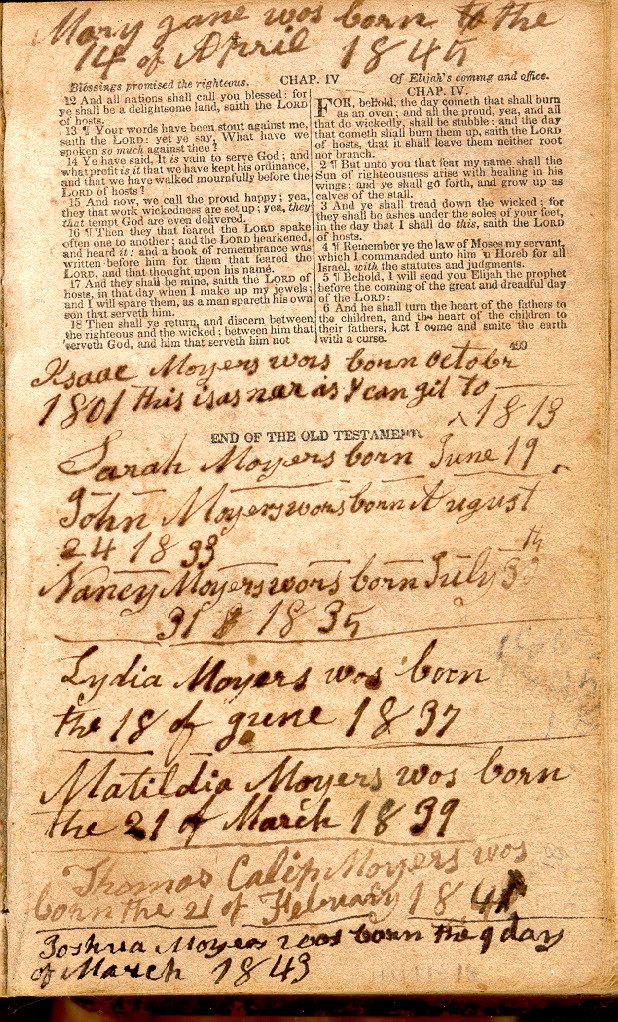 Mary Jane wos born to the
14 of Aprril 1845
Blessings promised the righteous.
CHAP. IV
Of Elijah's coming and office.
12 And all nations shall call you blessed: for
ye shall be a delightsome land, saith the LORD
of hosts.
13 ¶ Your words have been stout against me,
saith the LORD: yet ye say, What have we
spoken so much against thee?
14 Ye have said, It is vain to serve God; and
what profit is it that we have kept his ordinance,
and that we have walked mournfully before the
LORD of hosts?
15 And now, we call the proud happy; yea,
they that work wickedness are set up; yea, they
that tempt God are even delivered.
16 ¶ Then they that feared the LORD spake
often one to another; and the LORD hearkened,
and heard it: and a book of remembrance was
written before him for them that feared the
LORD, and that thought upon his name.
17 And they shall be mine, saith the LORD of
hosts, in that day when I make up my jewels;
and I will spare them, as a man spareth his own
son that serveth him.
18 Then shall ye return, and discern between
the righteous and the wicked; between him that
serveth God, and him that serveth him not
CHAP. IV.
FOR, behold, the day cometh that shall burn
as an oven; and all the proud, yea, and all
that do wickedly, shall be stubble: and the day
that cometh shall burn them up, saith the LORD
of hosts, that it shall leave them neither root
nor branch.
2 ¶ But unto you that fear my name shall the
Sun of righteousness arise with healing in his
wings: and ye shall go forth, and grow up as
calves of the stall.
3 And ye shall tread down the wicked; for
they shall be ashes under the soles of your feet,
in the day that I shall do this, saith the LORD
of hosts.
4 ¶ Remember ye the law of Moses my servant,
which I commanded unto him in Horeb for all
Israel, with the statutes and judgments.
5 ¶ Behold, I will send you Elijah the prophet
before the coming of the great and dreadful day
of the LORD:
6 And he shall turn the heart of the fathers to
the children, and the heart of the children to
their fathers, lest I come and smite the earth
with a curse.
499
Isaac Moyers wors born Octobr
1801 this is as nar as I can git to
1813
END OF THE OLD TESTAMENT
Sarah Moyers born June 19
John Moyers wors born August
24 1833
Nancy Moyers wors born July
31 1835
Lydia Moyers was born
the 18 of June 1837
Matildia Moyers wos born
the 21 of March 1839
Thomas Calip Moyers wos
born the 21 of Februaly 1841
Joshua Moyers wos born the 9 day
of March 1843